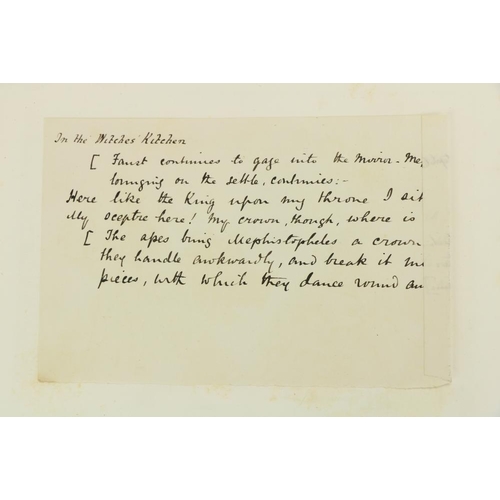 In the Witches' Kitchen
[ Faust continues to gaze into the Mirror - Me
lounging on the settle, continues:-
Here like the King upon my throne I sit
My sceptre here! My crown, though, where is
[ The apes bring Mephistopheles a crown
they handle awkwardly, and break it in
pieces, with which they dance round an